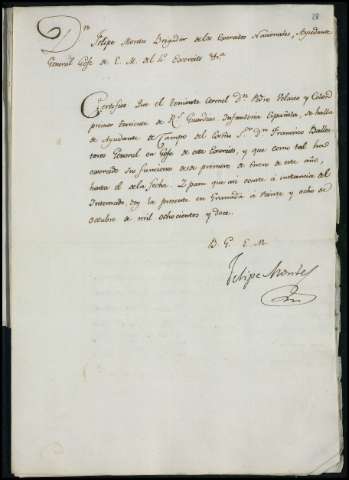 28
Dn Felipe Montes Brigadier de los Exercitos Nacionales, Ayudante
General Gefe de E. M. del 4o Exercito &a
Certifico que el Teniente Coronel Dn Pedro Velasco y
primer Teniente de Rs Guardias Infanteria Española, se halla
de Ayudante de Campo del Exmo Sor Dn Francisco Balles
teros General en Gefe de este Exercito, y que como tal ha
exercido sus funciones desde primero de Enero de este año,
hasta el de la fecha. Y para que asi conste á instancia del
Interesado doy la presente en Granada á veinte y ocho de
Octubre de mil ochocientos y doce.
E. M.
Felipe Montes